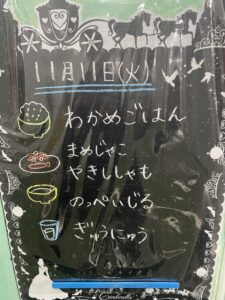 11月11日(火)
わかめごはん
まめじゃこ
やきししゃも
のっぺいじる
ぎゅうにゅう
Cinderella